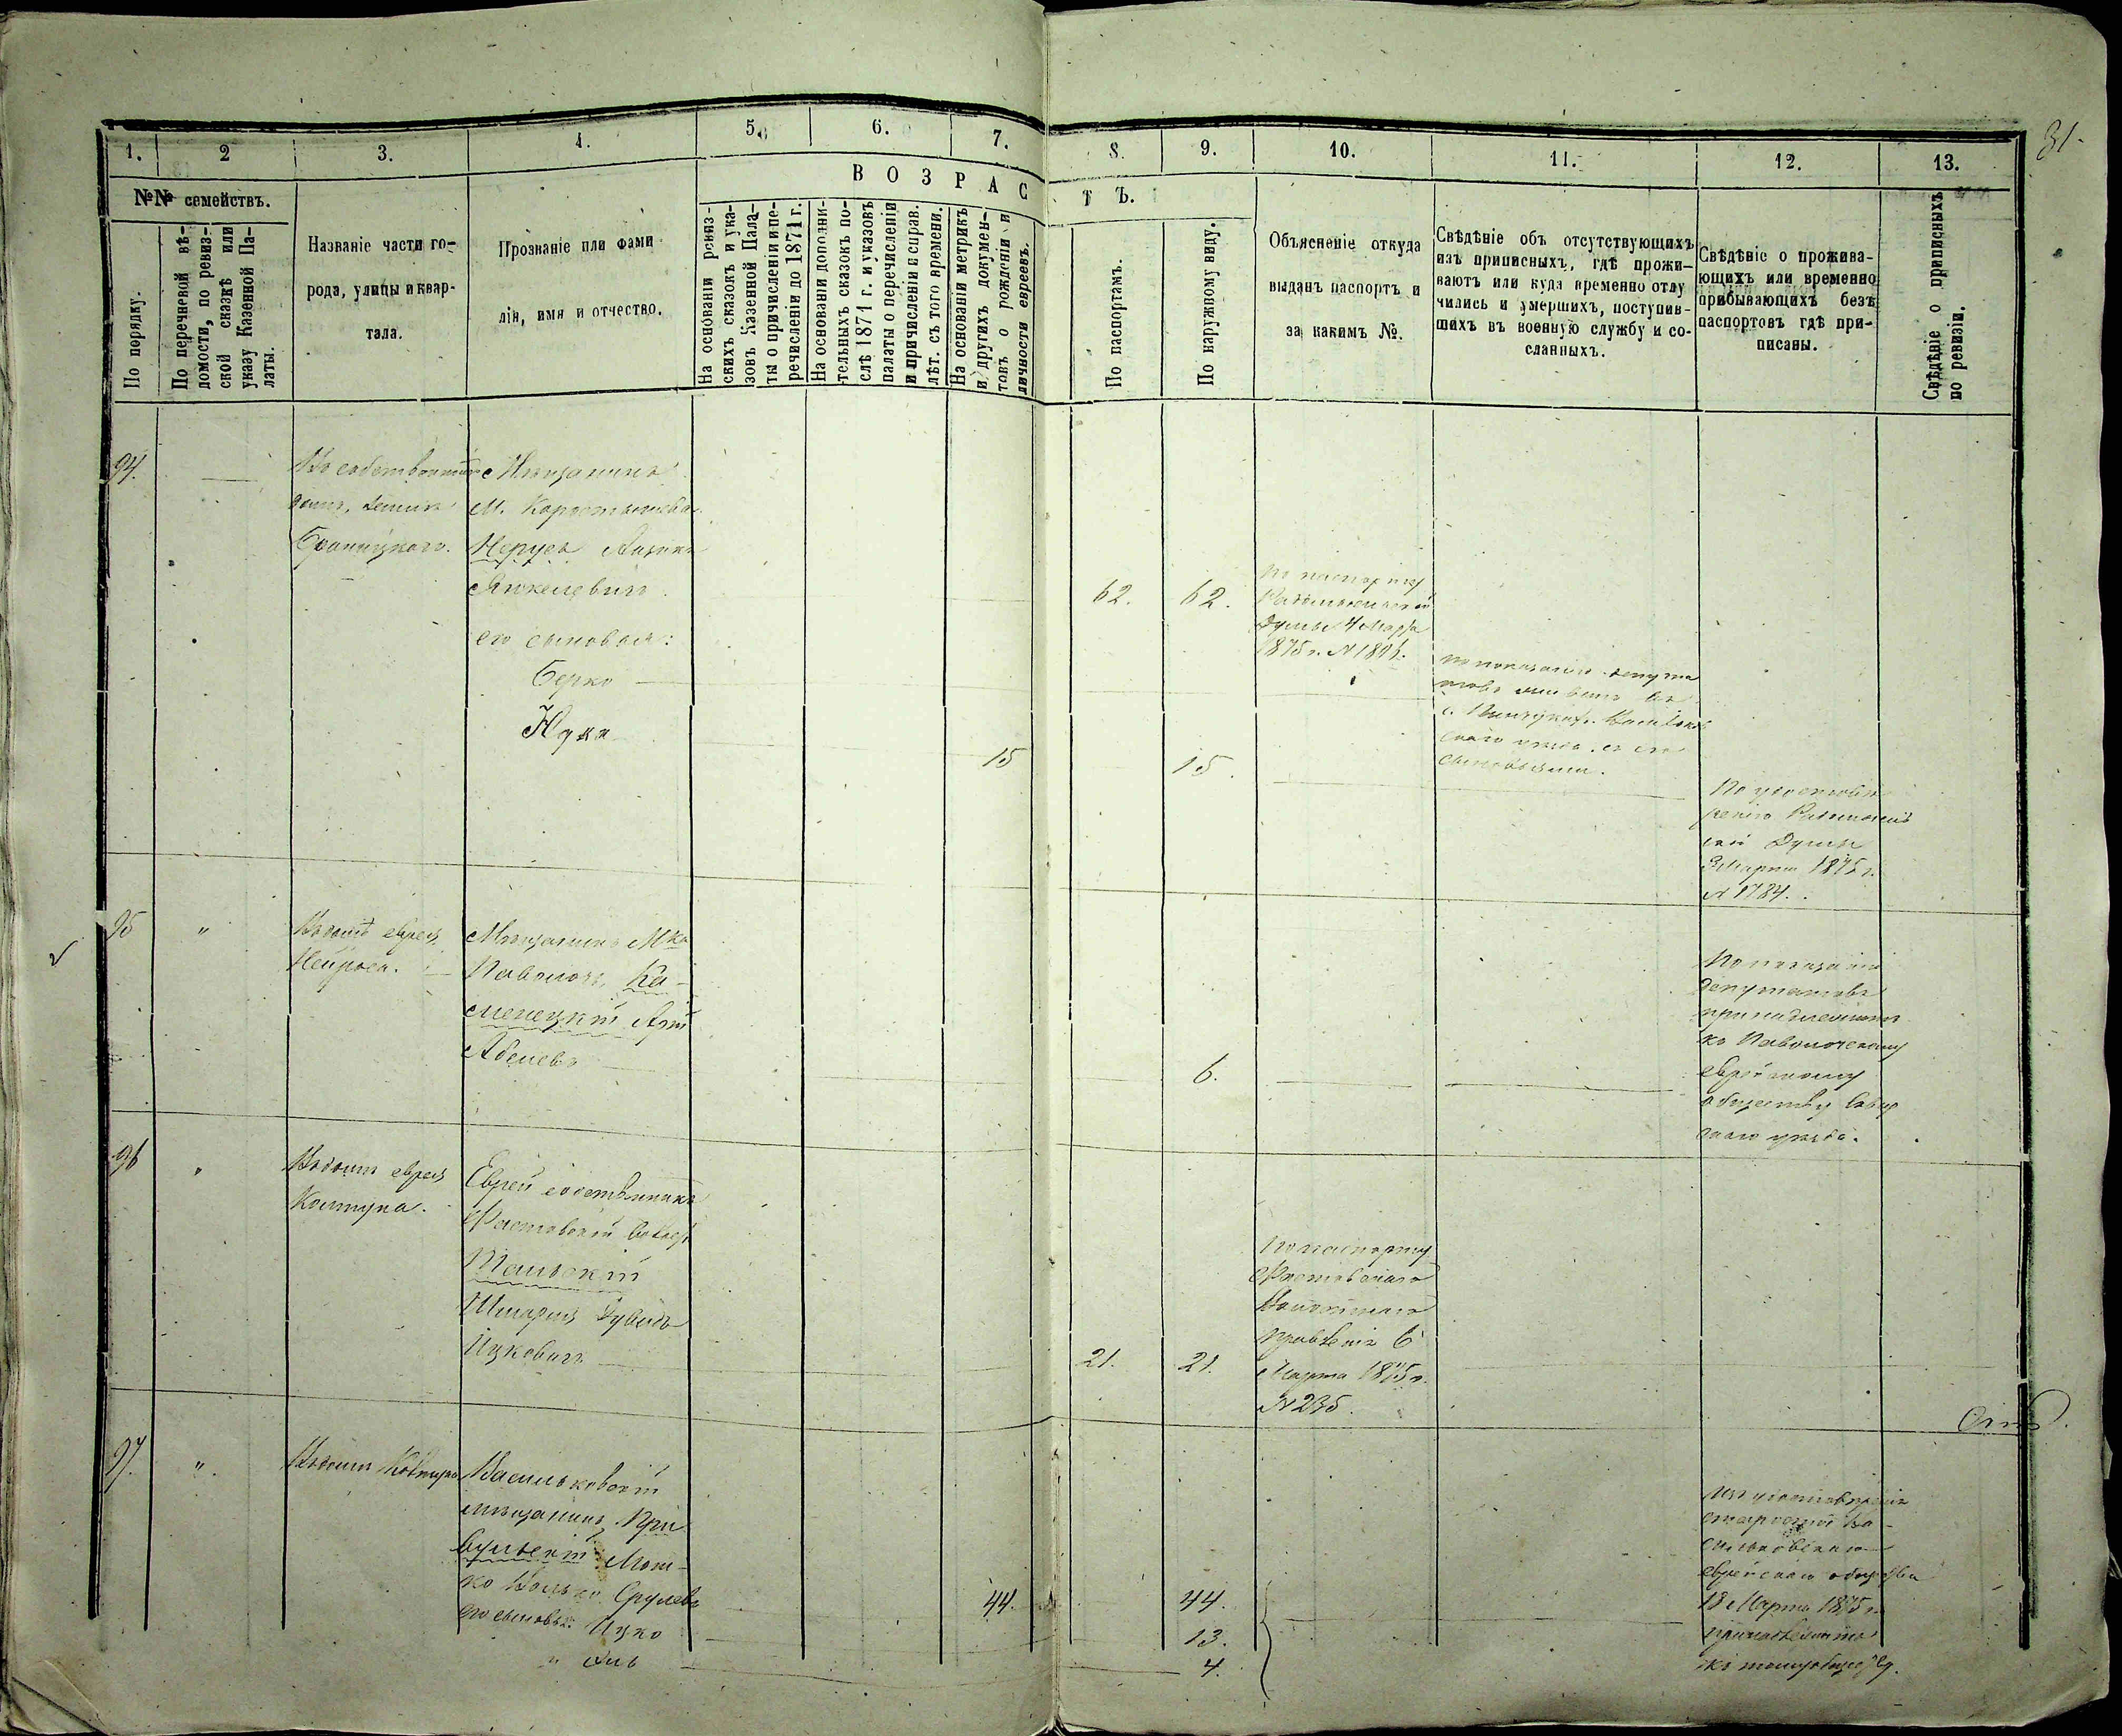 31.
1.
2
3.
4.
5.
6.
7.
8.
9.
10.
11.
12.
13.
№№ семействъ.
По порядку.
По перечневой вѣ-
домости, по ревиз-
ской сказкѣ или
указу Казенной Па-
латы.
Названіе части го-
рода, улицы и квар-
тала.
Прозваніе или фами
лія, имя и отчество.
ВОЗРАС
ТЪ.
На основаніи ревиз-
скихъ сказокъ и ука-
зовъ Казенной Пала-
ты о причисленіи и пе-
речисленіи до 1871 г.
На основаніи дополни-
тельныхъ сказокъ по-
слѣ 1871 г. и указовъ
палаты о перечисленіи
и причисленіи и справ.
лѣт. съ того времени.
На основаніи метрикъ
и другихъ докумен-
товъ о рожденіи и
личности евреевъ.
По паспортамъ.
По наружному виду.
Объясненіе откуда
выданъ паспортъ и
за какимъ №.
Свѣдѣніе объ отсутствующихъ
изъ приписныхъ, гдѣ прожи-
ваютъ или куда временно отлу
чились и умершихъ, поступив-
шихъ въ военную службу и со-
сланныхъ.
Свѣдѣніе о прожива-
ющихъ или временно
прибывающихъ безъ
паспортовъ гдѣ при-
писаны.
Свѣдѣніе о приписныхъ
по ревизіи.
94.
Въ собственномъ
домѣ, земля
Браницкаго.
Мѣщанинъ
М. Коростышева
Аизикъ
Янкелевичъ
его сыновья:
Берко
Нута
15
62.
62.
15.
По паспорту
Радомысльской
Думы 4 Марта
1875 г. №
по показанію депута
товъ въ
Васильков
скаго уѣзда съ его
сыновьями.
По удостовѣ
ренію Радомысль
ской Думы
3 Марта 1875 г.
№ 1784.
95
"
Въ домѣ еврея
Мѣщанинъ Мка
Паволочь, Ка-
менецкій Арій
Абелевъ
6.
По показанію
депутатовъ
принадлежитъ
къ Паволочскому
еврейскому
обществу Сквир
скаго уѣзда.
96
"
Въ домѣ еврея
Еврей собственникъ
Фастовской волости
Тальскій
Дувидъ
Ицковичъ
21.
21.
По паспорту
Фастовскаго
Волостнаго
Правленія 6
Марта 1875 г.
№ 235.
97.
"
Въ домѣ
Васильковскій
мѣщанинъ При-
вульскій Мош-
ко Волько Срулевъ
его сыновья: Ицко
"
44.
44.
13.
4.
По удостовѣренію
старосты Ва-
сильковскаго
еврейскаго общества
18 Марта 1875 г.
принадлежитъ
къ тому обществу.